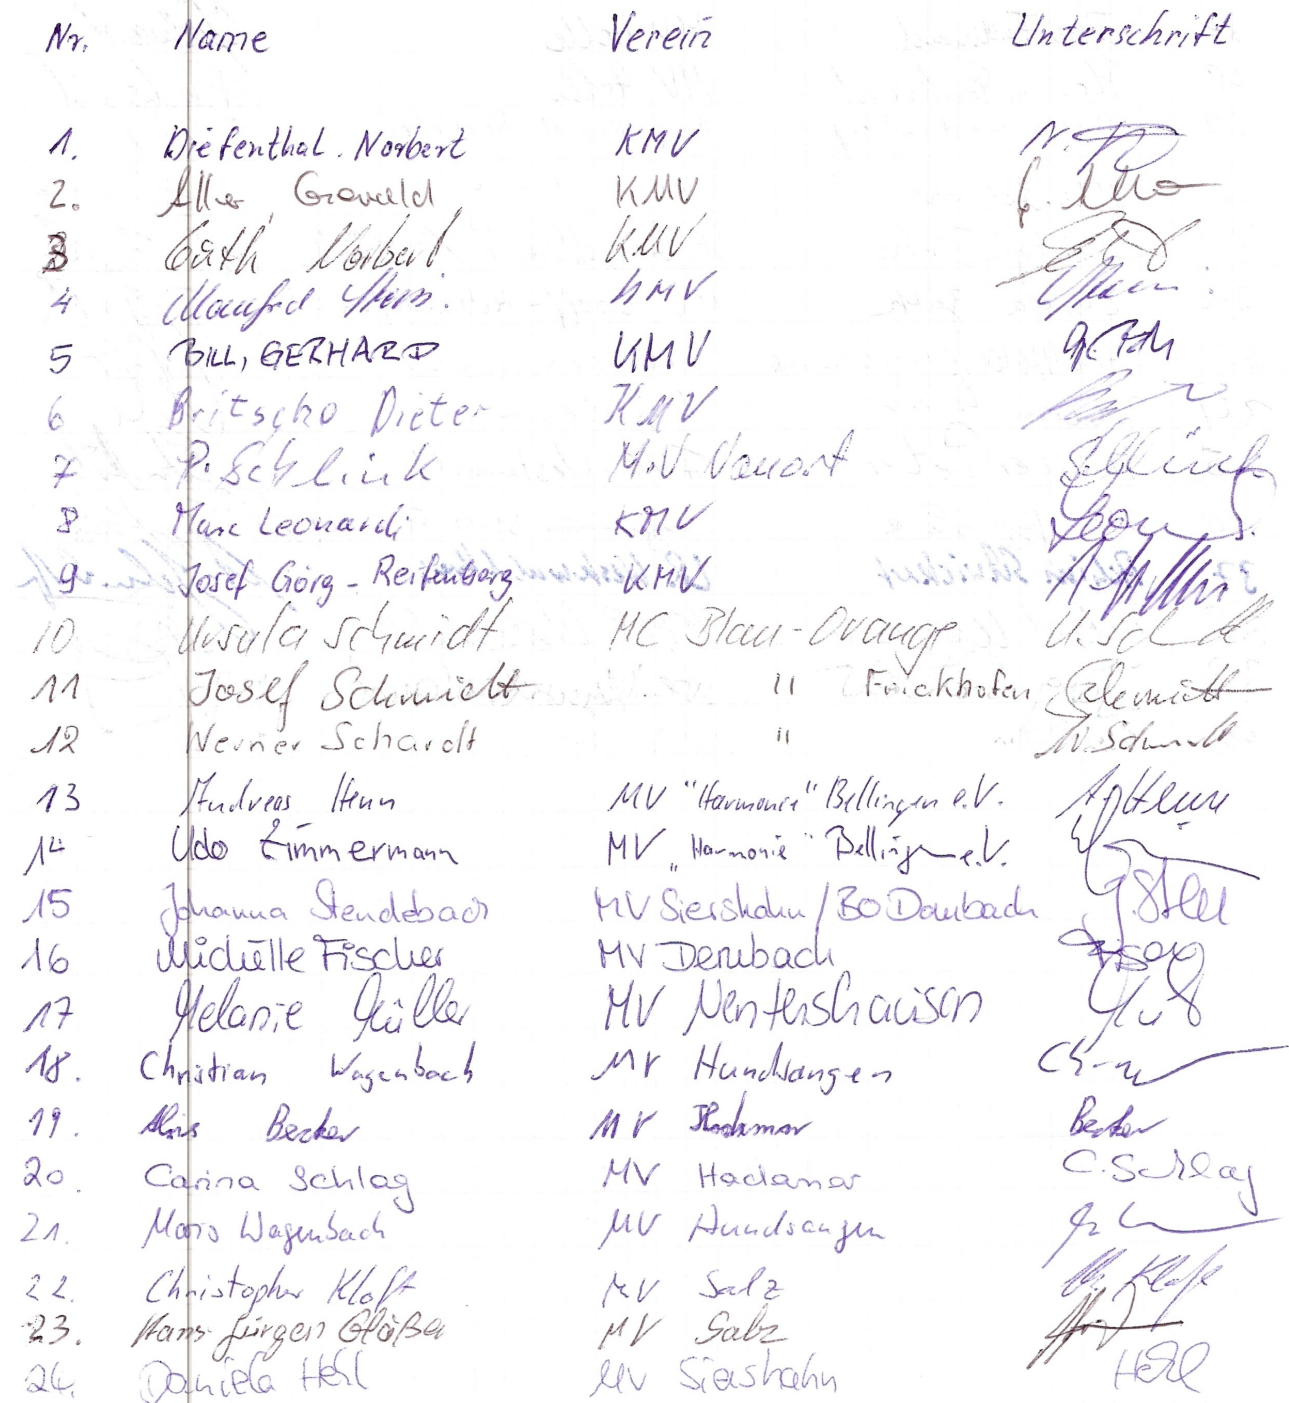 Nr. Name Verein Unterschrift
1. Diefenthal. Norbert KMV
2. Aller, Gerald KMV
3 Güth Norbert KMV
4 Manfred KMV
5 BILL, GERHARD KMV
6 Britscho Dieter KMV
7 P. Schlink M.V Nauort Schlink
8 Marc Leonardi KMV
9 Josef Görg - Reifenberg KMV
10 Ursula Schmidt MC Blau-Orange
11 Josef Schmidt " Frickhofen Schmidt
12 Werner Schardt "
13 Andreas Henn MV "Harmonie" Bellingen e.V. A. Henn
14 Udo Zimmermann MV "Harmonie" Bellingen e.V.
15 Johanna Stendebach MV Siershahn / BO Dernbach
16 Michelle Fischer MV Dernbach
17 Melanie Müller MV Nentershausen
18. Christian Wagenbach MV Hundsangen
19. Becker MV Becker
20. Carina Schlag MV Hadamar C. Schlag
21. Mario Wagenbach MV Hundsangen
22. Christopher Kloft MV Salz Kloft
23. Hans-Jürgen Gläßer MV Salz
24. Daniela Hehl MV Siershahn Hehl